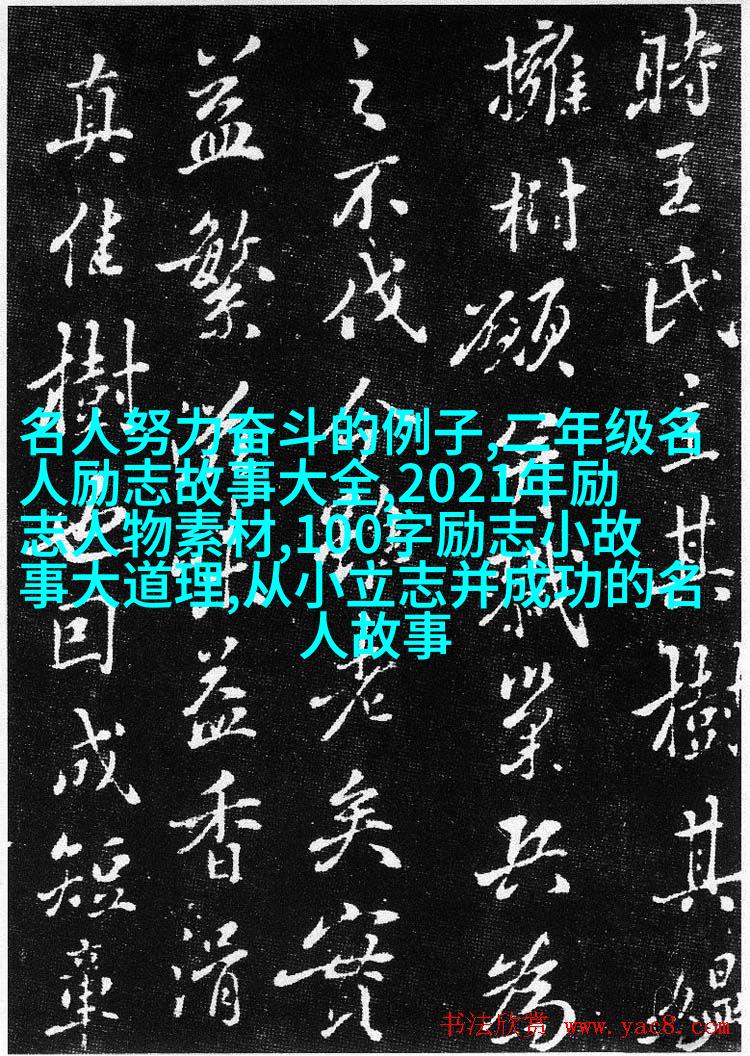 時王氏立其樹其
擁樹顧業兵為
之不伐今老矣實
益繁益香滑
真佳樹也因成短章
名人努力奋斗的例子,二年级名
人励志故事大全,2021年励
志人物素材,100字励志小故
事大道理,从小立志并成功的名
人故事
书法欣赏 www.yac8.com